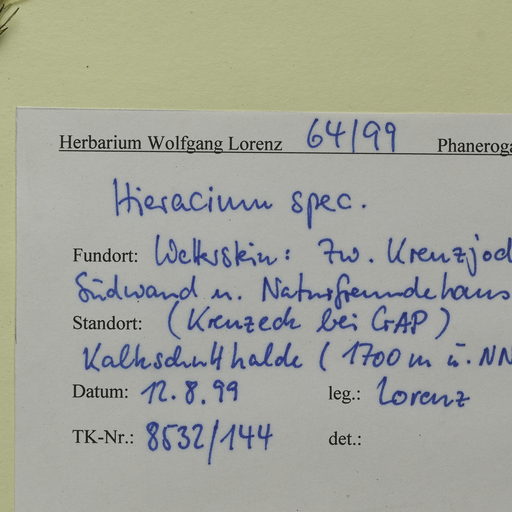 Herbarium Wolfgang Lorenz 64/99 Phaneroga
Hieracium spec.
Fundort: Wetterstein: Zw. Kreuzjoch
Südwand u. Naturfreundehaus
Standort: (Kreuzeck bei GAP)
Kalkschutthalde (1700 m ü. NN
Datum: 12.8.99 leg.: Lorenz
TK-Nr.: 8532/144 det.: